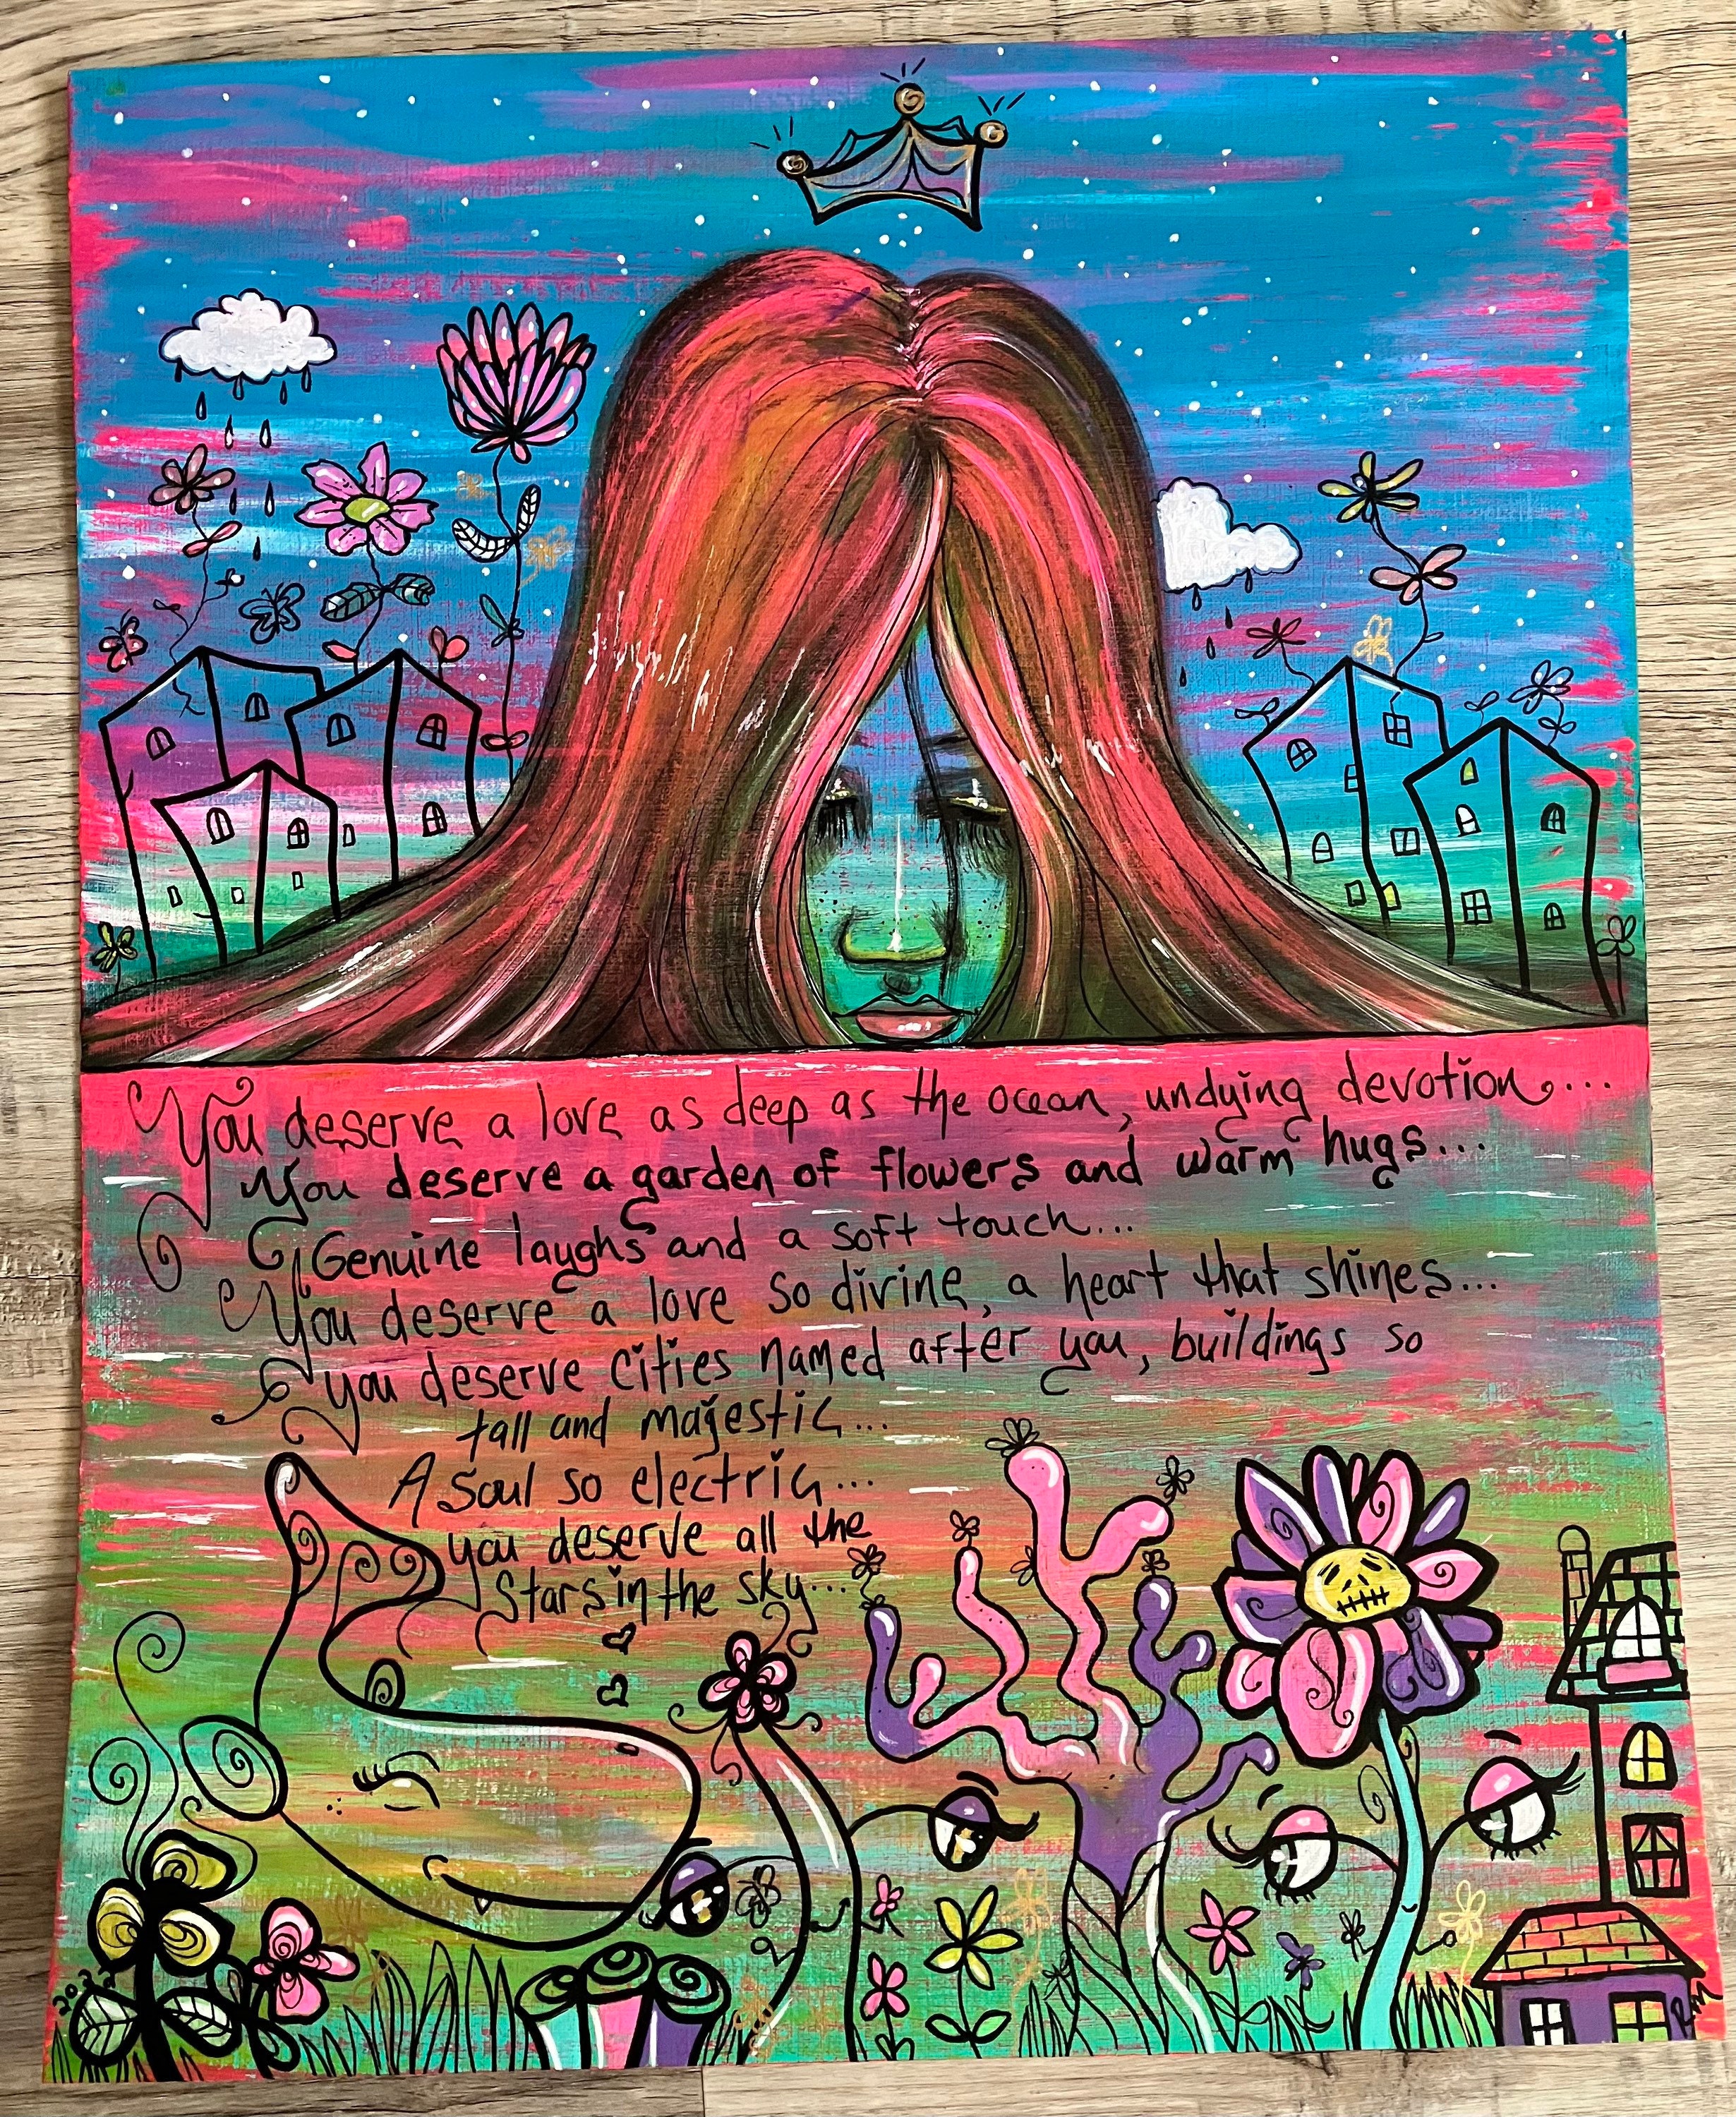 You deserve a love as deep as the ocean, undying devotion....
You deserve a garden of flowers and warm hugs...
Genuine laughs and a soft touch...
You deserve a love so divine, a heart that shines...
you deserve cities named after you, buildings so
tall and majestic...
A soul so electric...
you deserve all the
stars in the sky...
2022
RM